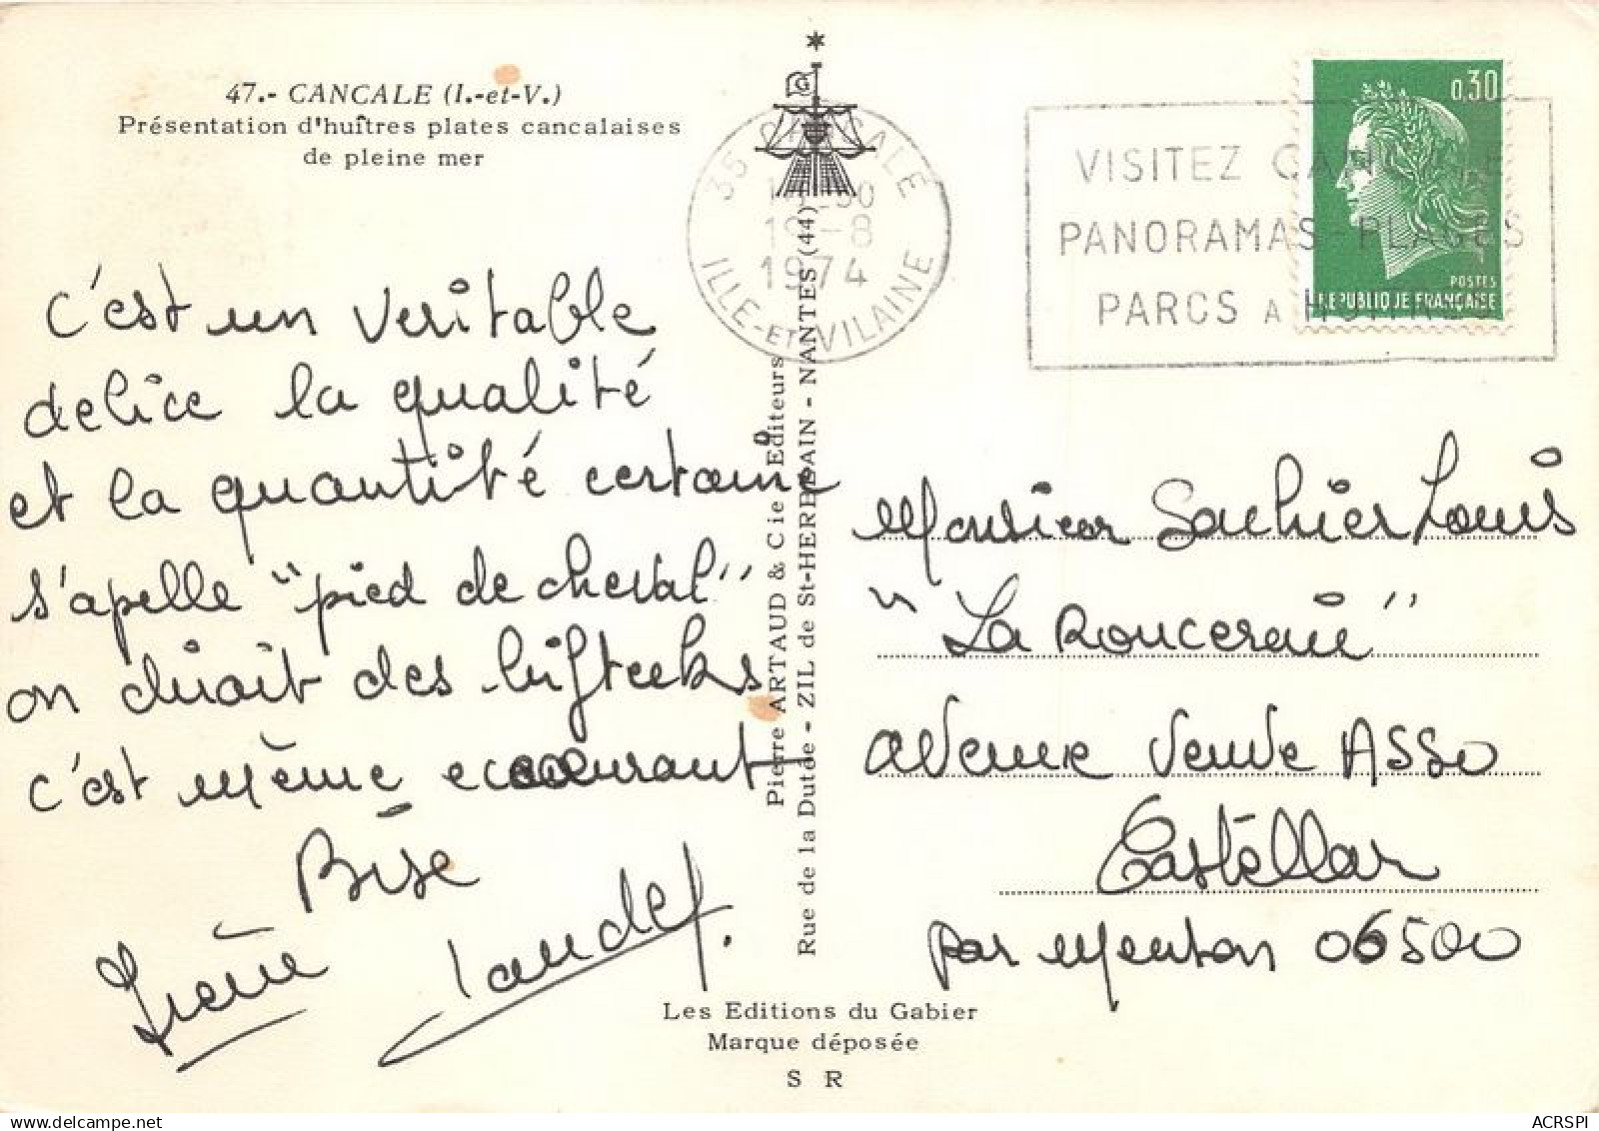 47.- CANCALE (I.-et-V.)
Présentation d'huîtres plates cancalaises
de pleine mer
c'est un veritable
delice la qualité
et la quantité certaine
s'apelle "pied de cheval"
on dirait des bifteeks
c'est même ecoeurant
Bise
Pierre ARTAUD & Cie Editeurs
Rue de la Dutée - ZIL de St-HERBLAIN - NANTES (44)
G
35 CANCALE
19-8
1974
ILLE-ET-VILAINE
VISITEZ CANCALE
PANORAMAS-PLAGES
PARCS A HUITRES
0,30
POSTES
REPUBLIQUE FRANÇAISE
Monsieur Louis
avenue Veuve Asso
Castellar
par Menton 06500
Les Editions du Gabier
Marque déposée
S R
ACRSPI